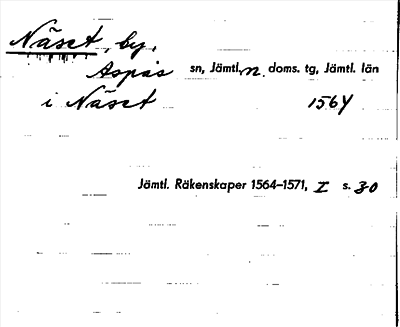 Näset, by,
Aspås sn, Jämtl. n. doms. tg, Jämtl. län
i Näset 1564
Jämtl. Räkenskaper 1564–1571, I s. 30